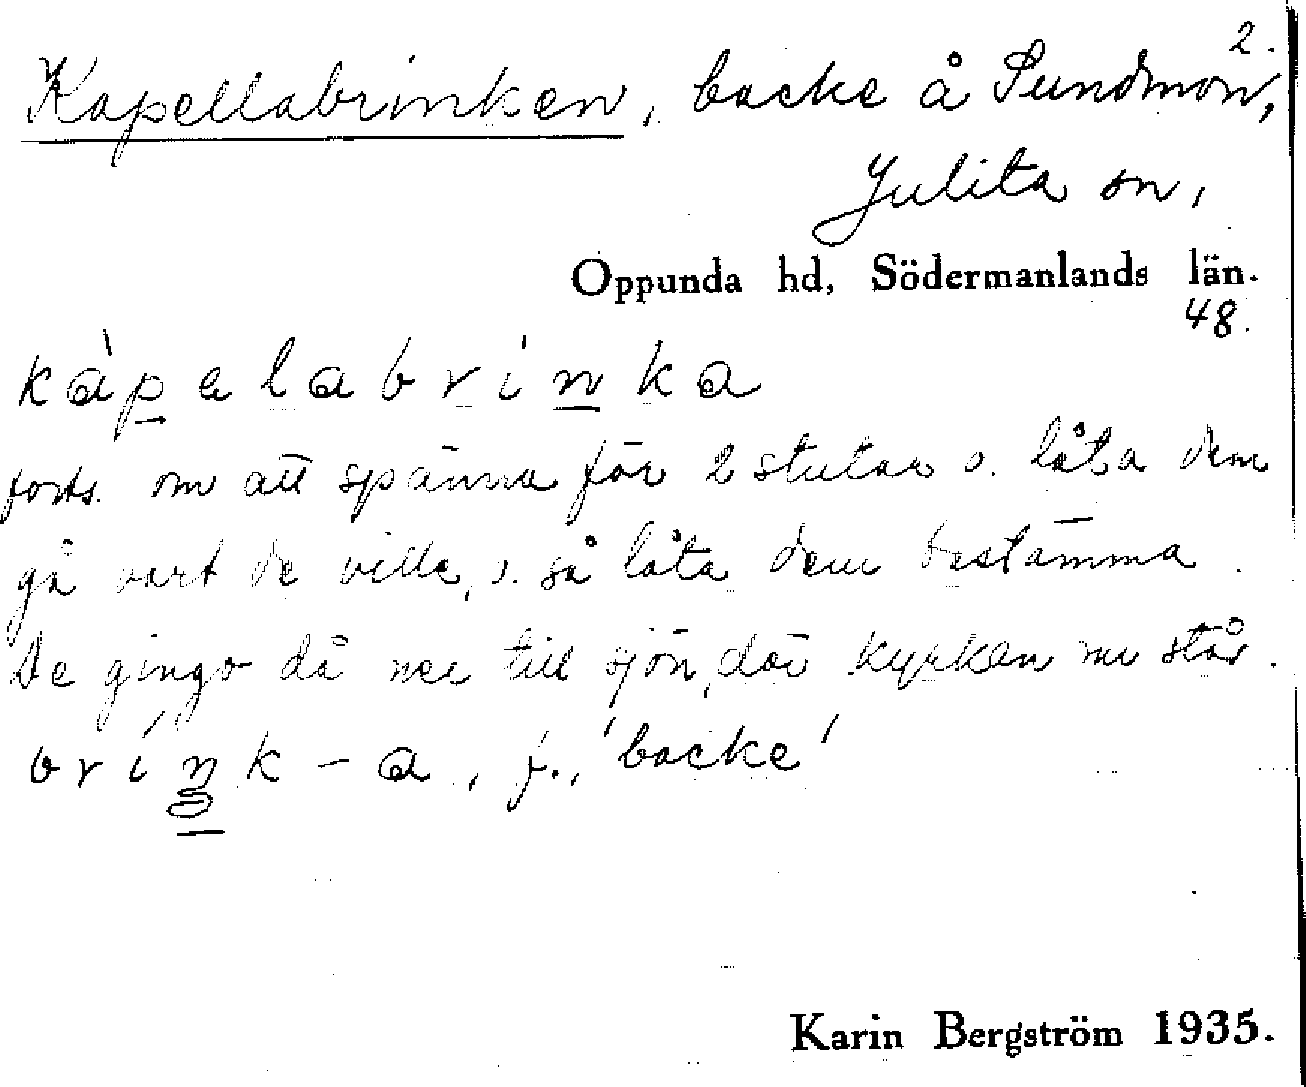 2.
Kapellabrinken, backe å Sundmon,
Julita sn,
Oppunda hd, Södermanlands län.
48.
kàpelabrìnka
forts. om att spänna för 2 stutar o. låta dem
gå vart de ville, o. så låta dem bestämma.
De gingo då ner till sjön, där kyrkan nu står.
brínk-a, f., 'backe'
Karin Bergström 1935.